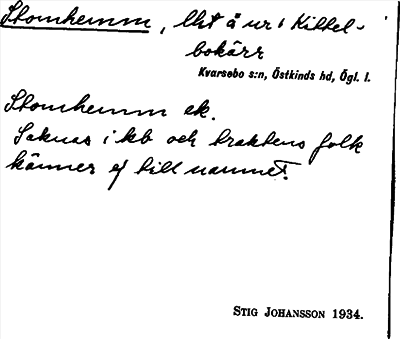 Stomhemm, lht å ur i Kittel-
bokärr
Kvarsebo s:n, Östkinds hd, Ögl. l.
Stomhemm ek.
Saknas i kb och traktens folk
känner ej till namnet.
STIG JOHANSSON 1934.